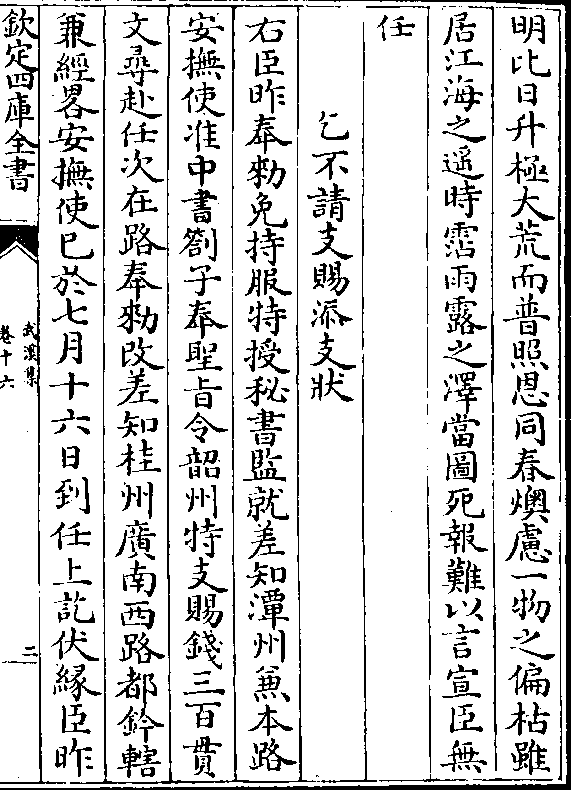 明比日升極大荒而普照恩同春燠慮一物之偏枯雖
居江海之遥時霑雨露之澤當圖死報難以言宣臣無
任
乞不請支賜添支狀
右臣昨奉勑免持服特授秘書監就差知潭州兼本路
安撫使准中書劄子奉聖旨令韶州特支賜錢三百貫
文尋赴任次在路奉勑改差知桂州廣南西路都鈐轄
兼經畧安撫使已於七月十六日到任上訖伏縁臣昨
欽定四庫全書
武溪集
卷十六
二